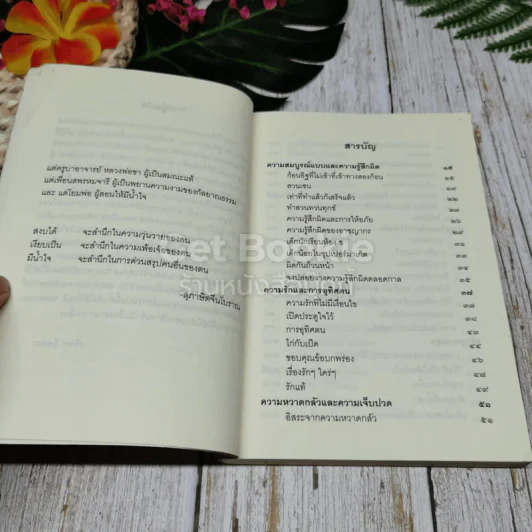 แด่ครูบาอาจารย์ หลวงพ่อชา ผู้เป็นสมณะแท้
แด่เพื่อนสหพรหมจารี ผู้เป็นพยานความงามของกัลยาณธรรม
และ แด่โยมพ่อ ผู้สอนให้มีน้ำใจ
สงบได้ จะสำนึกในความวุ่นวายของตน
เงียบเป็น จะสำนึกในความเพ้อเจ้อของตน
มีน้ำใจ จะสำนึกในการด่วนสรุปคนอื่นของตน
-สุภาษิตจีนโบราณ
สารบัญ
ความสมบูรณ์แบบและความรู้สึกผิด ๑๕
ก้อนอิฐที่ไม่เข้าที่เข้าทางสองก้อน ๑๕
สวนเซน ๑๙
เท่าที่ทำแล้วก็เสร็จแล้ว ๒๒
ทำสวนทวนทุกข์
ความรู้สึกผิดและการให้อภัย
ความรู้สึกผิดของอาชญากร
เด็กนักเรียนห้อง
เด็กน้อยในรุปเปอร์มาเก็ต
ผิดกันถ้วนหน้า
จงปล่อยวางความรู้สึกผิดตลอดกาล ๓๕
ความรักและการอุทิศตน ๓๗
ความรักที่ไม่มีเงื่อนไข
เปิดประตูใจไว้
การอุทิศตน ๔๓
ไก่กับเป็ด ๔๔
ขอบคุณข้อบกพร่อง ๔๖
เรื่องรักๆ ใคร่ๆ ๔๗
รักแท้ ๔๙
ความหวาดกลัวและความเจ็บปวด ๕๑
อิสระจากความหวาดกลัว ๕๑
Get Bookie
ร้านหนังสือ